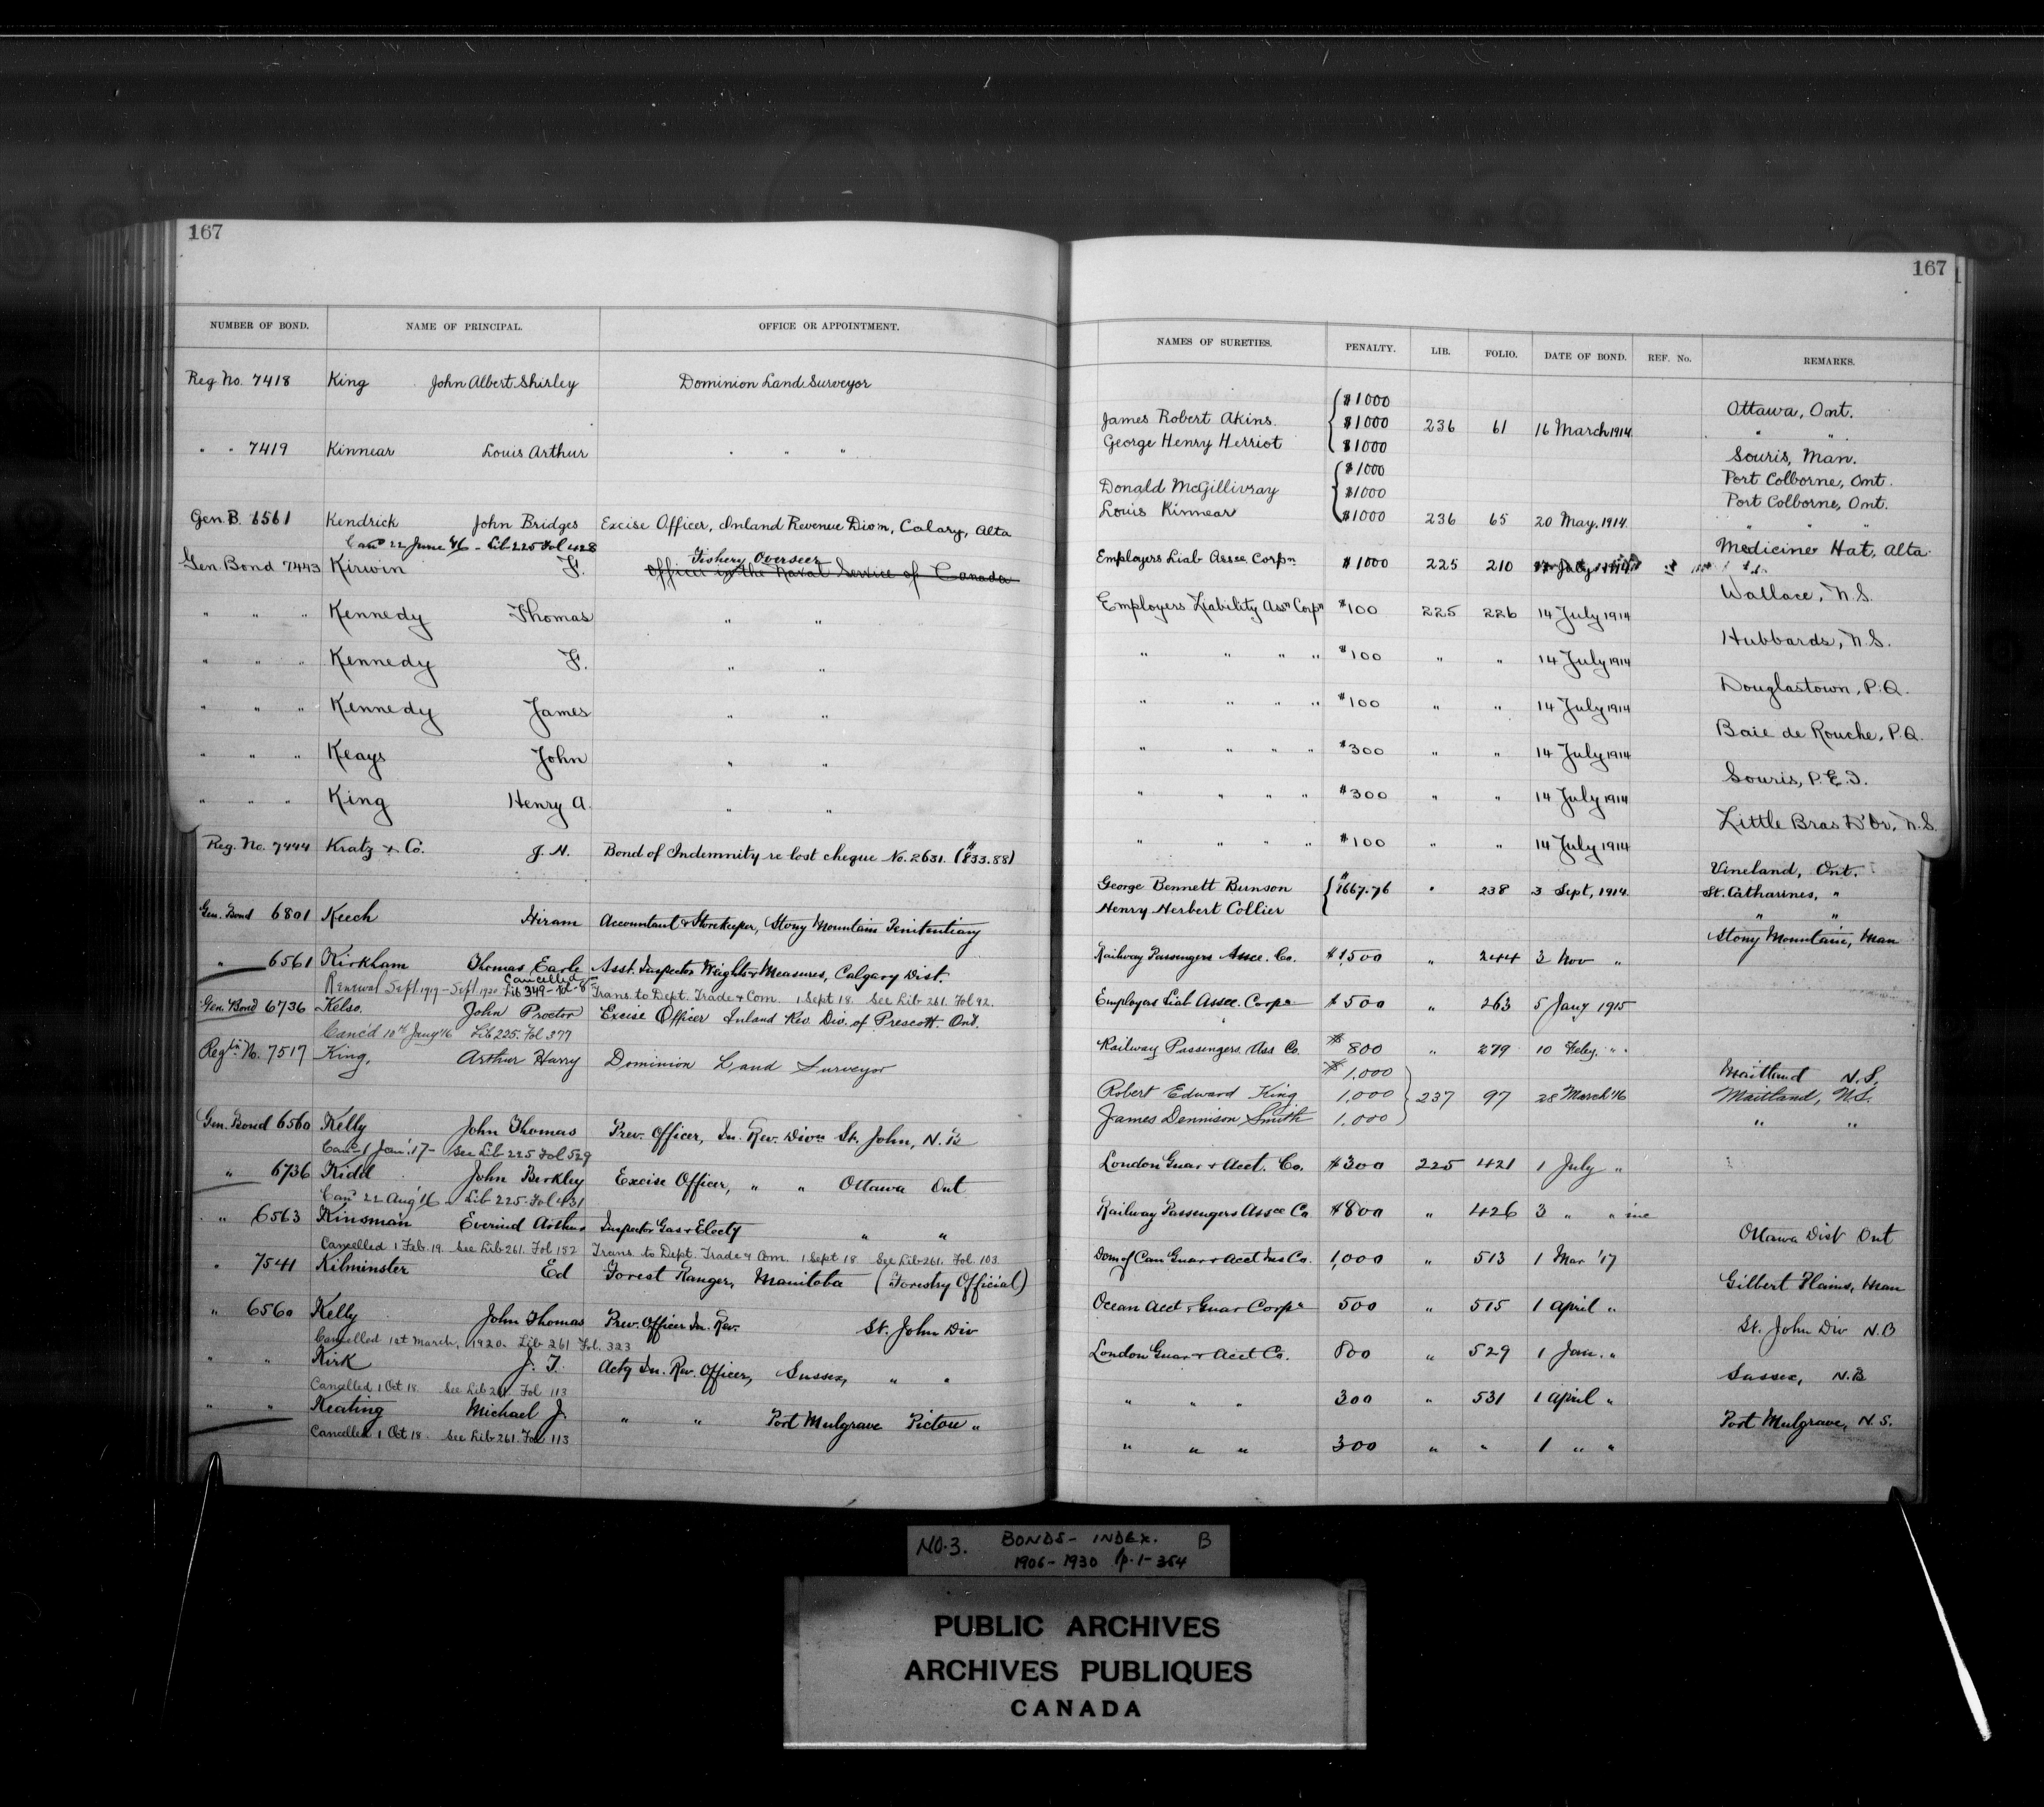 167
NUMBER OF BOND. NAME OF PRINCIPAL. OFFICE OR APPOINTMENT.
Reg No. 7418 King John Albert Shirley Dominion Land Surveyor
" " 7419 Kinnear Louis Arthur " " "
Gen. B. 6561 Kendrick John Bridges Excise Officer, Inland Revenue Div'n, Calary, Alta
Can'd 22 June '16 - Lib 225 Fol 428
Fishery Overseer
Gen. Bond 7443 Kirwin F. Officer in the Naval Service of Canada
" " " Kennedy Thomas " "
" " " Kennedy F. " "
" " " Kennedy James " "
" " " Keays John " "
" " " King Henry A. " "
Reg. No. 7444 Kratz & Co. J. N. Bond of Indemnity re lost cheque No. 2631. ($833.88)
Gen. Bond 6801 Keech Hiram Accountant & Storekeeper, Stony Mountain Penitentiary
" 6561 Kirkham Thomas Earle Asst. Inspector Weights & Measures, Calgary Dist.
Cancelled
Renewal Sept 1919 - Sept 1920 Lib 349 - Fol - 8 Trans. to Dept. Trade & Com. 1 Sept 18. See Lib 261. Fol 92.
Gen. Bond 6736 Kelso. John Proctor Excise Officer Inland Rev. Div. of Prescott. Ont.
Canc'd 10th Jany '16 Lib 225. Fol 377
Regtn No. 7517 King, Arthur Harry Dominion Land Surveyor
Gen. Bond 6560 Kelly John Thomas Prev. Officer, In. Rev. Divn St. John, N.B
Canc 1 Jan'. 17 - See Lib 225 Fol 529
" 6736 Kidd John Berkley Excise Officer, " " Ottawa Ont
Can'd 22 Aug '16 Lib 225. Fol 431
" 6563 Kinsman Everind Arthur Inspector Gas & Electy " "
Cancelled 1 Feb. 19. See Lib 261. Fol 152 Trans. to Dept. Trade & Com. 1 Sept 18 See Lib 261. Fol. 103
" 7541 Kilminster Ed Forest Ranger, Manitoba (Forestry Official)
" 6560 Kelly John Thomas Prev. Officer In. Rev. St. John Div
Cancelled 1st March, 1920. Lib 261 Fol. 323
" " Kirk J. T. Actg In. Rev. Officer, Sussex, " "
Cancelled 1 Oct 18. See Lib 261. Fol 113
" " Keating Michael J. " " Port Mulgrave Pictou "
Cancelled 1 Oct 18. See Lib 261. Fol 113
167
NAMES OF SURETIES. PENALTY. LIB. FOLIO. DATE OF BOND. REF. No. REMARKS.
$1000 Ottawa, Ont.
James Robert Akins. $1000 236 61 16 March 1914 " "
George Henry Herriot $1000 Souris, Man.
$1000 Port Colborne, Ont.
Donald McGillivray $1000 Port Colborne, Ont.
Louis Kinnear $1000 236 65 20 May, 1914. " " "
Employers Liab Assce Corpn $1000 225 210 Medicine Hat, Alta.
Employers Liability Assn Corpn $100 225 226 14 July 1914 Wallace, N.S.
" " " " $100 " " 14 July 1914 Hubbards, N.S.
" " " " $100 " " 14 July 1914 Douglastown, P.Q.
" " " " $300 " " 14 July 1914 Baie de Rouche, P.Q.
" " " " $300 " " 14 July 1914 Souris, P.E.I.
" " " " $100 " " 14 July 1914 Little Bras D'Or, N.S.
Vineland, Ont.
George Bennett Burnson $1667.76 " 238 3 Sept, 1914. St. Catharines, "
Henry Herbert Collier " "
Railway Passengers Assce. Co. $1,500 " 244 3 Nov " Stony Mountain, Man
Employers Liab Assce. Corpn $500 " 263 5 Jany 1915
Railway Passengers Ass Co. $800 " 279 10 Feby. " "
$1,000 Maitland N.S.
Robert Edward King 1,000 237 97 28 March '16 Maitland, N.S.
James Dennison Smith 1,000 " "
London Guar & Acct. Co. $300 225 421 1 July "
Railway Passengers Assce Co $800 " 426 3 " "
Dom of Can Guar & Acct Ins Co. 1,000 " 513 1 Mar '17 Ottawa Dist Ont
Ocean Acct & Guar Corpn 500 " 515 1 April " Gilbert Plains, Man
London Guar & Acct Co. 800 " 529 1 Jan. " St. John Div N.B
" " " 300 " 531 1 April " Sussex, N.B
" " " 300 " " 1 " " Port Mulgrave, N.S.
NO. 3. BONDS - INDEX. B
1906 - 1930 p. 1 - 364
PUBLIC ARCHIVES
ARCHIVES PUBLIQUES
CANADA